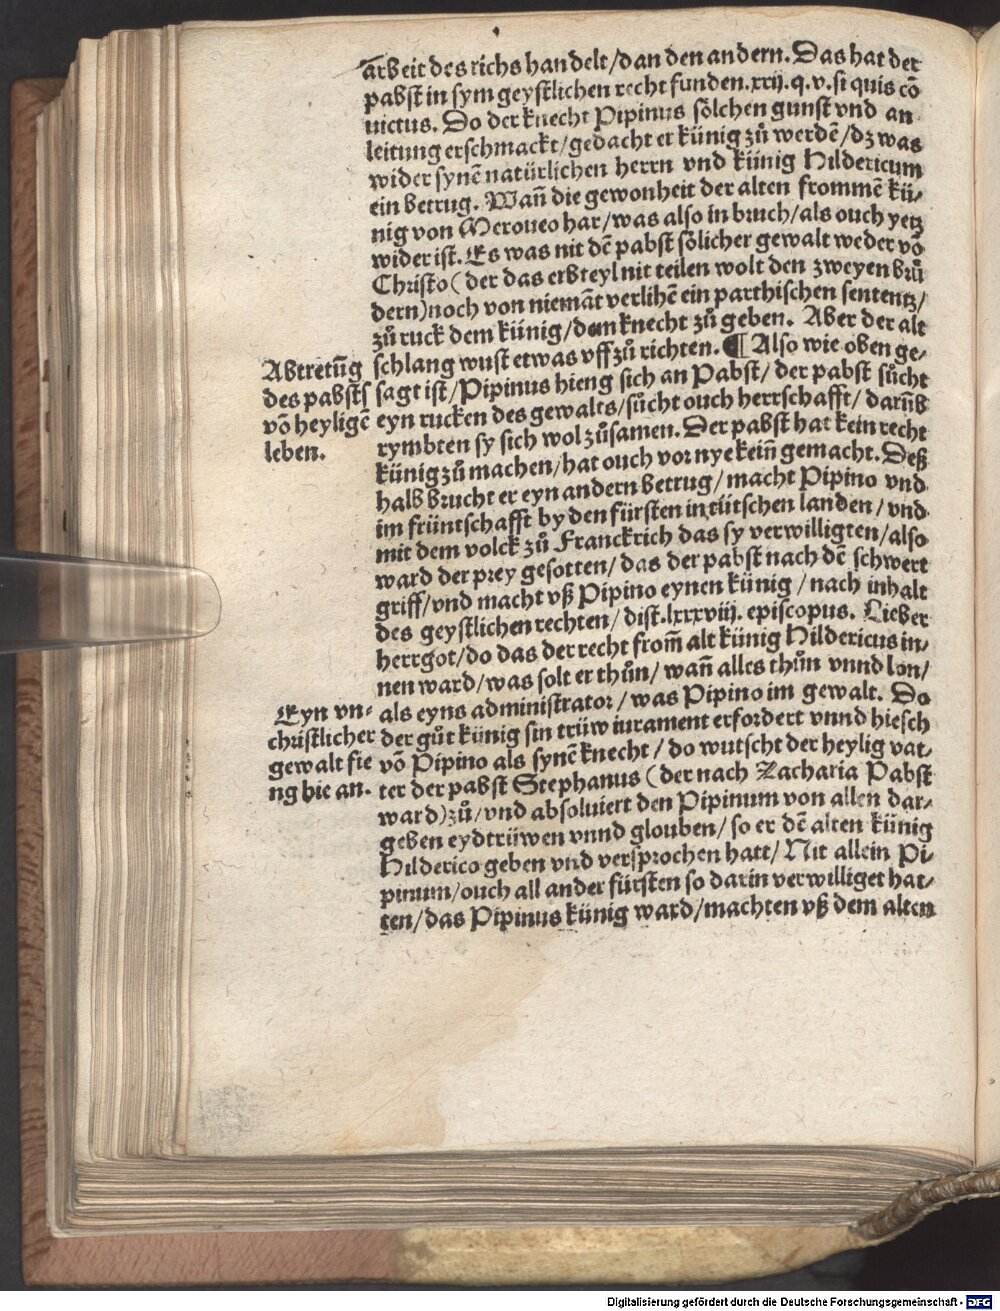 arbeit des richs handelt/dan den andern. Das hat der
pabst in sym geystlichen recht funden.xxij.q.v.si quis cō
uictus. Do der knecht Pipinus sölchen gunst vnd an
leitung erschmackt/gedacht er künig zů werdē/dz was
wider synē natürlichen herrn vnd künig Hildericum
ein betrug. Wañ die gewonheit der alten frommē kü-
nig von Meroueo har/was also in bruch/als ouch yetz
wider ist. Es was nit dē pabst sölicher gewalt weder vō
Christo (der das erbteyl nit teilen wolt den zweyen brů
dern) noch von niemāt verlihē ein parthischen sententz/
zů ruck dem künig/dem knecht zů geben. Aber der alt
schlang wust etwas vff zů richten. ¶ Also wie oben ge-
sagt ist/Pipinus hieng sich an Pabst/der pabst sůcht
eyn rucken des gewalts/sůcht ouch herrschafft/darūb
rymbten sy sich wol zůsamen. Der pabst hat kein recht
künig zů machen/hat ouch vor nye keiñ gemacht. Deß
halb brucht er eyn andern betrug/macht Pipino vnd
im früntschafft by den fürsten in tütschen landen/vnd
mit dem volck zů Franckrich das sy verwilligten/also
ward der prey gesotten/das der pabst nach dē schwert
griff/vnd macht vß Pipino eynen künig/nach inhalt
des geystlichen rechten/dist.lxxxviij. episcopus. Lieber
herrgot/do das der recht from̄ alt künig Hildericus in-
nen ward/was solt er thůn/wañ alles thůn vnnd lon/
als eyns administrator/was Pipino im gewalt. Do
der gůt künig sin trüw iurament erfordert vnnd hiesch
vō Pipino als synē knecht/do wutscht der heylig vat-
ter der pabst Stephanus (der nach Zacharia Pabst
ward) zů/vnd absoluiert den Pipinum von allen dar-
geben eydtrüwen vnnd glouben/so er dē alten künig
Hilderico geben vnd versprochen hatt/Nit allein Pi-
pinum/ouch all ander fürsten so darin verwilliget hat-
ten/das Pipinus künig ward/machten vß dem alten
Abtretūg
des pabsts
vō heyligē
leben.
Eyn vn-
christlicher
gewalt fie
ng hie an.
Digitalisierung gefördert durch die Deutsche Forschungsgemeinschaft - DFG